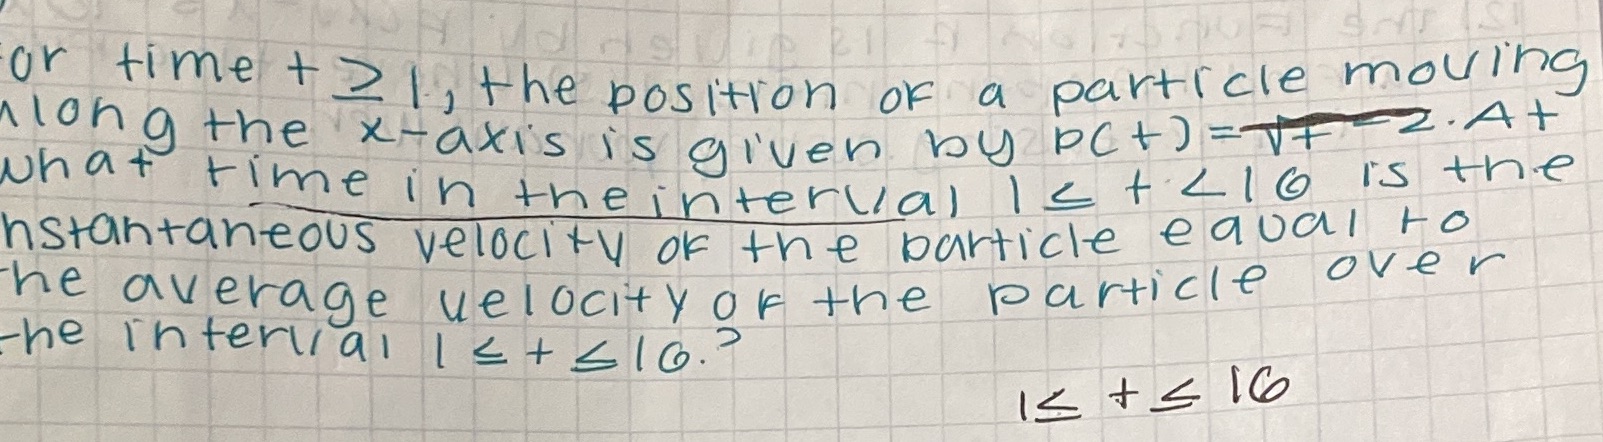 or time t ≥ 1, the position of a particle moving
along the x-axis is given by p(t) = √t - 2. At
what time in the interval 1 ≤ t < 16 is the
nstantaneous velocity of the particle equal to
he average velocity of the particle over
he interval 1 ≤ t ≤ 16.?
1 ≤ t ≤ 16